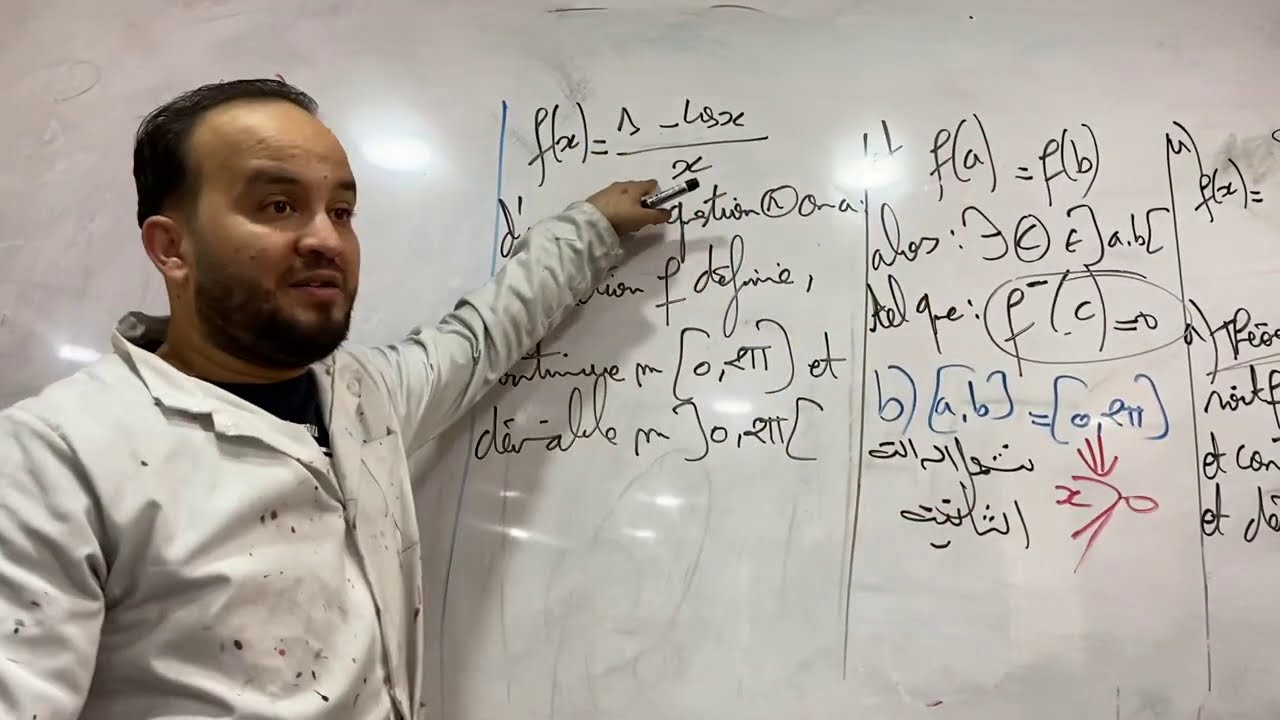 f(x) = 1 - cos x / x
d' question ① on a
f définie,
continue sur [0, 2π] et
dérivable sur ]0, 2π[
f(a) = f(b)
alors : ∃ c ∈ ]a.b[
tel que : f'(c) = 0
b) [a,b] = [0, 2π]
الثانية
x > 0
f(x) =
a)
soit f
et con
et dé